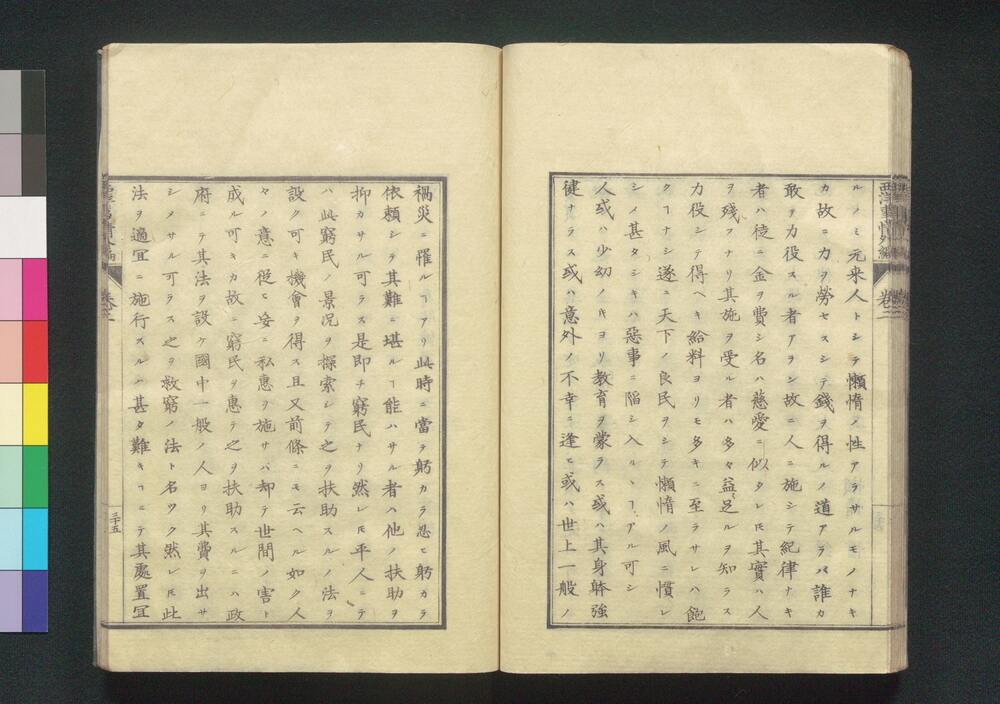 西洋事情外編 巻二
ルノミ元来人トシテ懶惰ノ性アラサルモノナキ
カ故ニ力ヲ勞セスシテ錢ヲ得ルノ道アラバ誰カ
敢テ力役スル者アランヤ故ニ人ニ施シテ紀律ナキ
者ハ徒ニ金ヲ費シ名ハ慈愛ニ似タレ𪜈其實ハ人
ヲ殘フナリ其施ヲ受ル者ハ多々益足ルヲ知ラス
力役シテ得ヘキ給料ヨリモ多キニ至ラサレハ飽
クヿナシ遂ニ天下ノ良民ヲシテ懶惰ノ風ニ慣レ
シメ甚タシキハ惡事ニ陥シ入ルヽヿアル可シ
人或ハ少幼ノキヨリ教育ヲ蒙ラス或ハ其身躰強
健ナラス或ハ意外ノ不幸ニ逢ヒ或ハ世上一般ノ
禍災ニ罹ルヿアリ此時ニ當テ躬カラ忍ヒ躬カラ
依頼シテ其難ニ堪ルヿ能ハサル者ハ他ノ扶助ヲ
抑カサル可ラス是即チ窮民ナリ然レ𪜈平人ニテ
ハ此窮民ノ景况ヲ探索シテ之ヲ扶助スルノ法ヲ
設ク可キ機會ヲ得ス且又前條ニモ云ヘル如ク人
々ノ意ニ從ヒ妄ニ私惠ヲ施サバ却テ世間ノ害ト
成ル可キカ故ニ窮民ヲ惠テ之ヲ扶助スルニハ政
府ニテ其法ヲ設ケ國中一般ノ人ヨリ其費ヲ出サ
シメサル可ラス之ヲ救窮ノ法ト名ツク然レ𪜈此
法ヲ適宜ニ施行スルハ甚タ難キヿニテ其處置宜
三十五